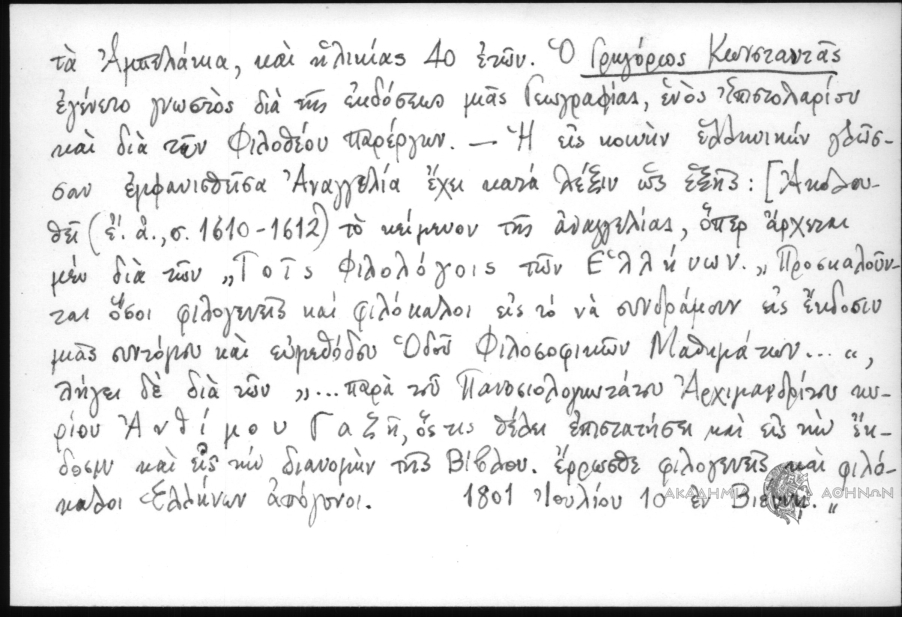 τὰ Ἀμπελάκια, καὶ ἡλικίας 40 ἐτῶν. Ὁ Γρηγόριος Κωνσταντᾶς
ἐγένετο γνωστὸς διὰ τῆς ἐκδόσεως μιᾶς Γεωγραφίας, ἑνὸς Ἐπιστολαρίου
καὶ διὰ τῶν Φιλοθέου παρέργων. — Ἡ εἰς κοινὴν ἑλληνικὴν γλῶσ-
σαν ἐμφανισθεῖσα Ἀναγγελία ἔχει κατὰ λέξιν ὡς ἑξῆς: [Ἀκολου-
θεῖ (ἔ. ἀ., σ. 1610-1612) τὸ κείμενον τῆς ἀναγγελίας, ὅπερ ἄρχεται
μὲν διὰ τῶν „Τοῖς Φιλολόγοις τῶν Ἑλλήνων. „Προσκαλοῦν-
ται ὅσοι φιλογενεῖς καὶ φιλόκαλοι εἰς τὸ νὰ συνδράμουν εἰς ἔκδοσιν
μιᾶς συντόμου καὶ εὐμεθόδου Ὁδοῦ Φιλοσοφικῶν Μαθημάτων... “,
λήγει δὲ διὰ τῶν „... παρὰ τοῦ Πανοσιολογιωτάτου Ἀρχιμανδρίτου κυ-
ρίου Ἀνθίμου Γαζῆ, ὅς τις θέλει ἐπιστατήσει καὶ εἰς τὴν ἔκ-
δοσιν καὶ εἰς τὴν διανομὴν τῆς Βίβλου. ἔρρωσθε φιλογενεῖς καὶ φιλό-
καλοι Ἑλλήνων ἀπόγονοι. 1801 Ἰουλίου 10 ἐν Βιέννῃ. “
ΑΚΑΔΗΜΙΑ ΑΘΗΝΩΝ